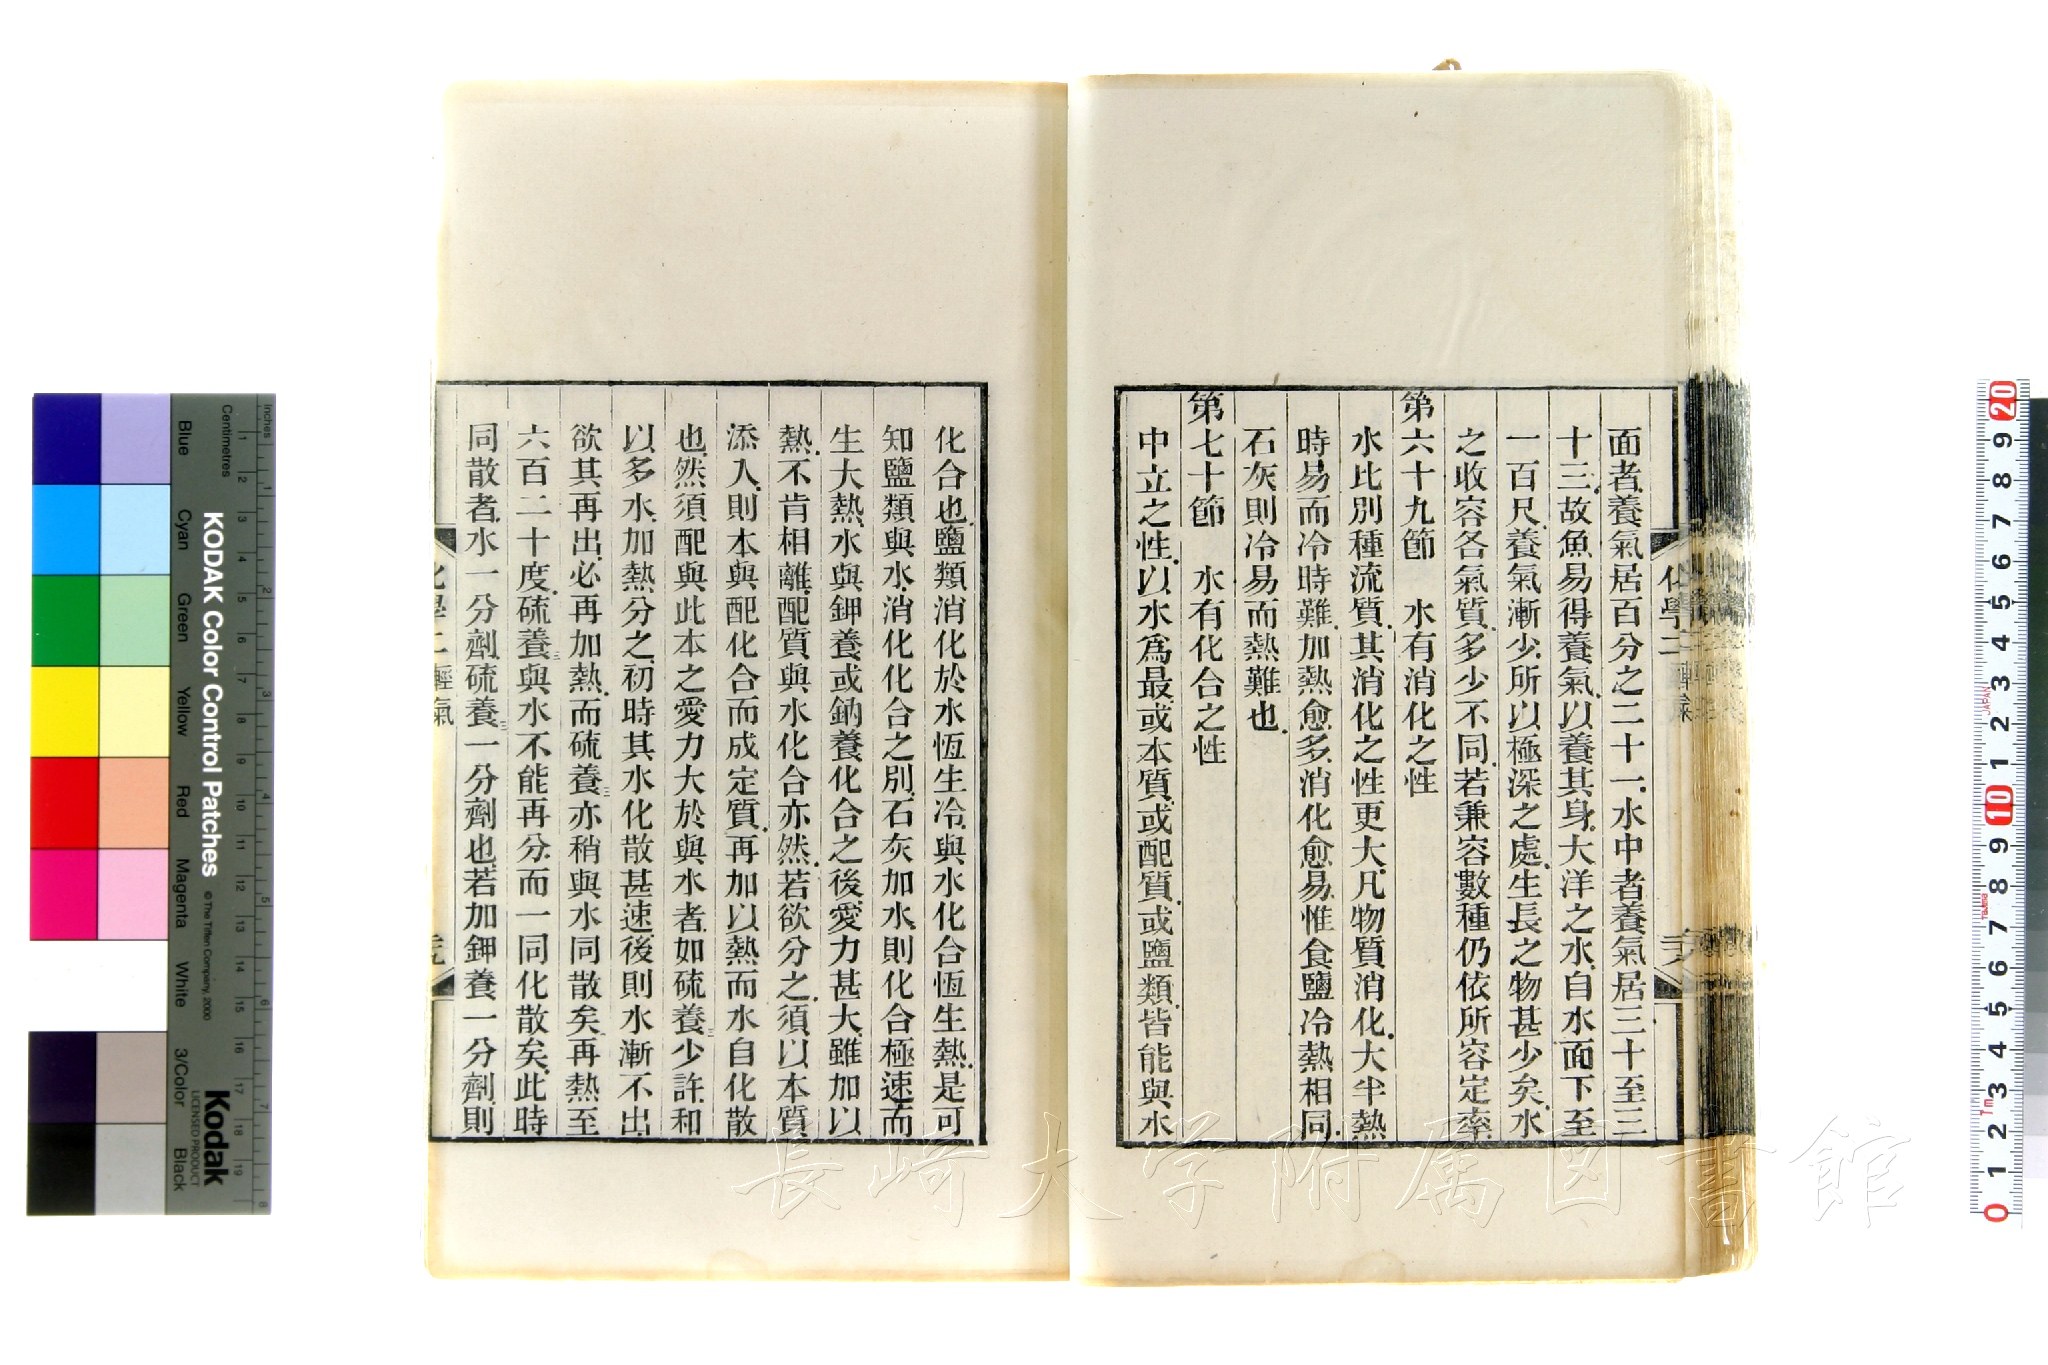 面者、養氣居百分之二十一、水中者養氣居三十至三
十三、故魚易得養氣、以養其身、大洋之水、自水面下至
一百尺、養氣漸少、所以極深之處、生長之物甚少矣、水
之收容各氣質、多少不同、若兼容數種、仍依所容定率、
第六十九節　水有消化之性
水比別種流質、其消化之性更大、凡物質消化、大半熱
時易而冷時難、加熱愈多、消化愈易、惟食鹽冷熱相同、
石灰則冷易而熱難也、
第七十節　水有化合之性
中立之性、以水爲最、或本質、或配質、或鹽類、皆能與水
化學二
化合也、鹽類消化於水恆生冷、與水化合恆生熱、是可
知鹽類與水、消化化合之別、石灰加水、則化合極速、而
生大熱、水與鉀養或鈉養化合之後、愛力甚大、雖加以
熱、不肯相離、配質與水化合亦然、若欲分之、須以本質
添入、則本與配化合而成定質、再加以熱而水自化散
也、然須配與此本之愛力大於與水者、如硫養三少許、和
以多水、加熱分之、初時其水化散甚速、後則水漸不出、
欲其再出、必再加熱、而硫養三亦稍與水同散矣、再熱至
六百二十度、硫養三與水不能再分、而一同化散矣、此時
同散者、水一分劑、硫養三一分劑也、若加鉀養一分劑、則
化學二 輕氣
長崎大学附属図書館
KODAK Color Control Patches
© The Tiffen Company, 2000
Kodak
LICENSED PRODUCT
Inches
Centimetres
Blue
Cyan
Green
Yellow
Red
Magenta
White
3/Color
Black
1 2 3 4 5 6 7 8 9 10 11 12 13 14 15 16 17 18 19
20 9 8 7 6 5 4 3 2 1 10 9 8 7 6 5 4 3 2 1 0
JAPAN